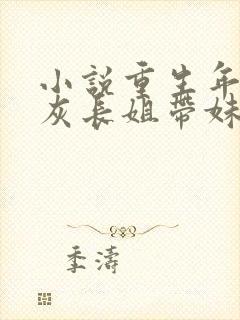 小説重生年
灰長姐帶妹
季濤